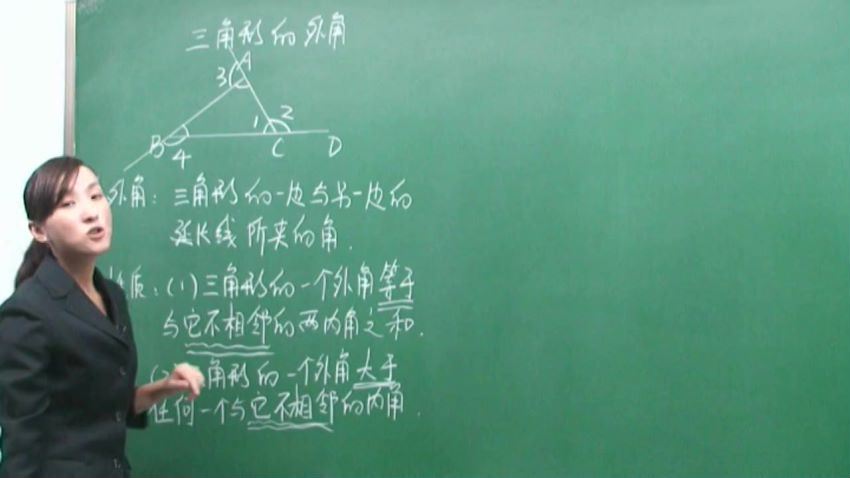 三角形的外角
A
3
1 2
B 4 C D
外角：三角形的一边与另一边的
延长线所夹的角．
质：(1)三角形的一个外角等于
与它不相邻的两内角之和．
角形的一个外角大于
任何一个与它不相邻的内角．